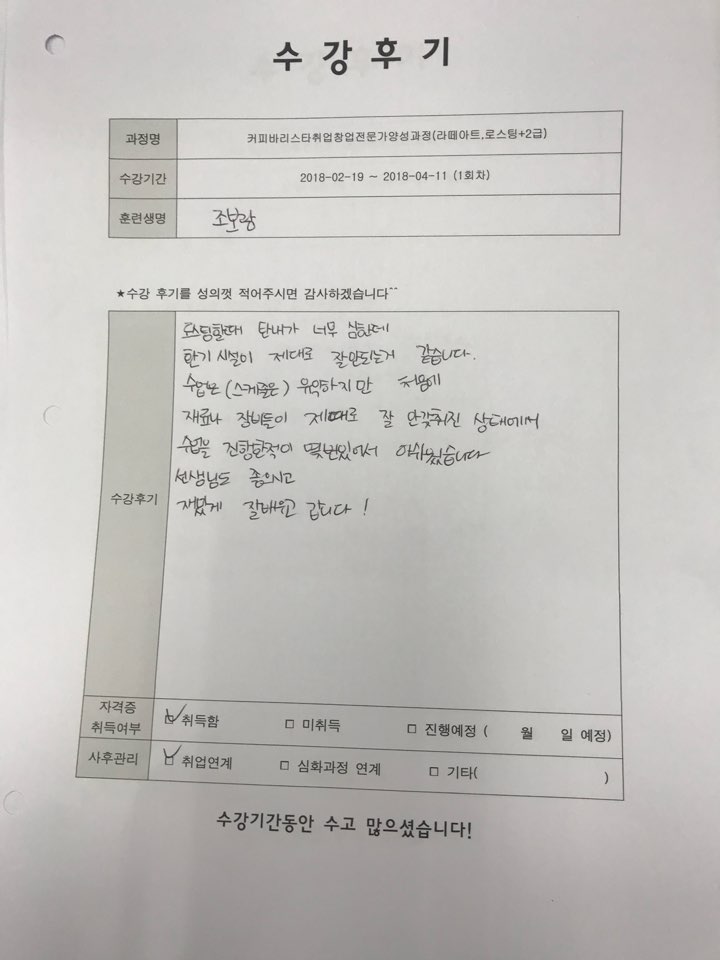 수 강 후 기
과정명 커피바리스타취업창업전문가양성과정(라떼아트,로스팅+2급)
수강기간 2018-02-19 ~ 2018-04-11 (1회차)
훈련생명 조보랑
★수강 후기를 성의껏 적어주시면 감사하겠습니다^^
로스팅할때 탄내가 너무 심한데
환기 시설이 제대로 잘안되는거 같습니다.
수업은 (스케줄은) 유익하지만 처음에
재료나 장비들이 제때로 잘 안갖춰진 상태에서
수업을 진행한적이 몇번있어서 아쉬웠습니다
선생님도 좋으시고
수강후기
재밌게 잘배우고 갑니다!
자격증 취득여부 ☑ 취득함 □ 미취득 □ 진행예정 ( 월 일 예정)
사후관리 ☑ 취업연계 □ 심화과정 연계 □ 기타( )
수강기간동안 수고 많으셨습니다!